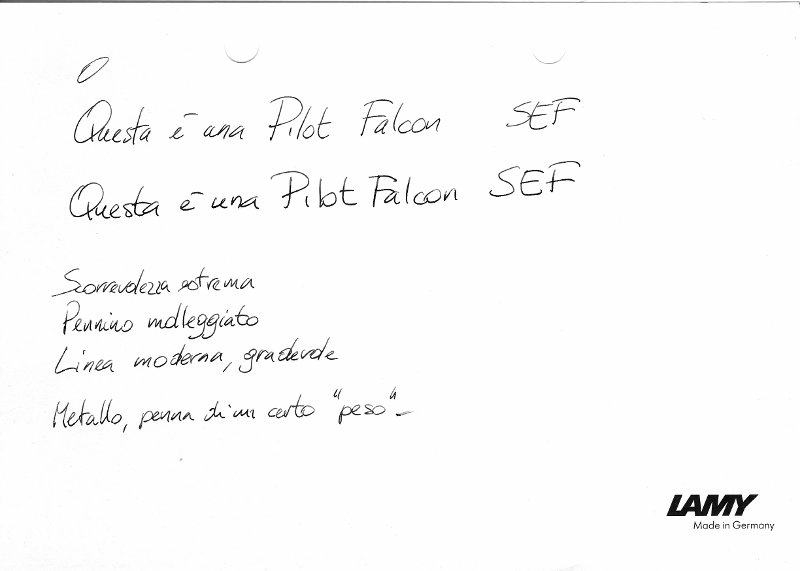 Questa è una Pilot Falcon SEF
Questa è una Pilot Falcon SEF
Scorrevolezza estrema
Pennino molleggiato
Linea moderna, gradevole
Metallo, penna di un certo "peso"-
LAMY
Made in Germany